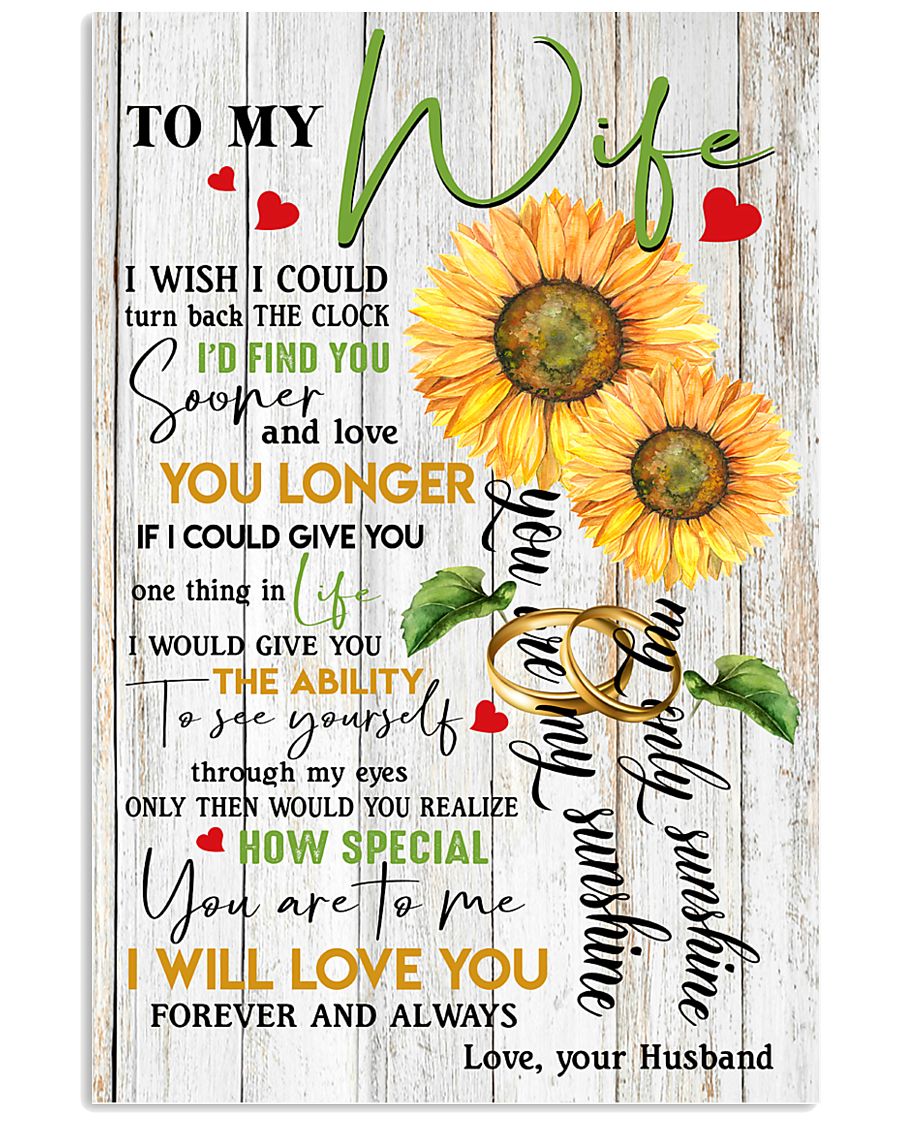 TO MY Wife
I WISH I COULD
turn back THE CLOCK
I'D FIND YOU
Sooner
and love
YOU LONGER
IF I COULD GIVE YOU
one thing in Life
I WOULD GIVE YOU
THE ABILITY
To see yourself
through my eyes
ONLY THEN WOULD YOU REALIZE
HOW SPECIAL
You are To me
I WILL LOVE YOU
FOREVER AND ALWAYS
you are my sunshine
my only sunshine
Love, your Husband